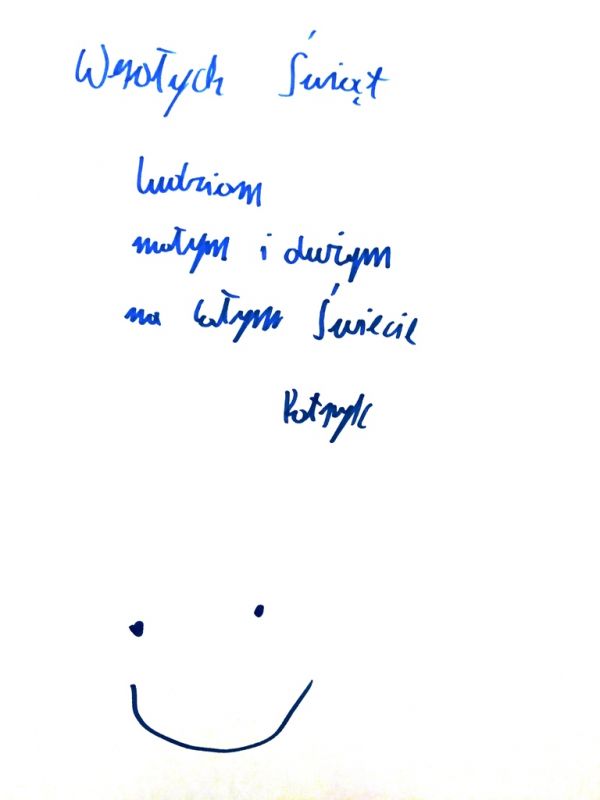 Wesołych Świąt
ludziom
małym i dużym
na całym Świecie
Patryk